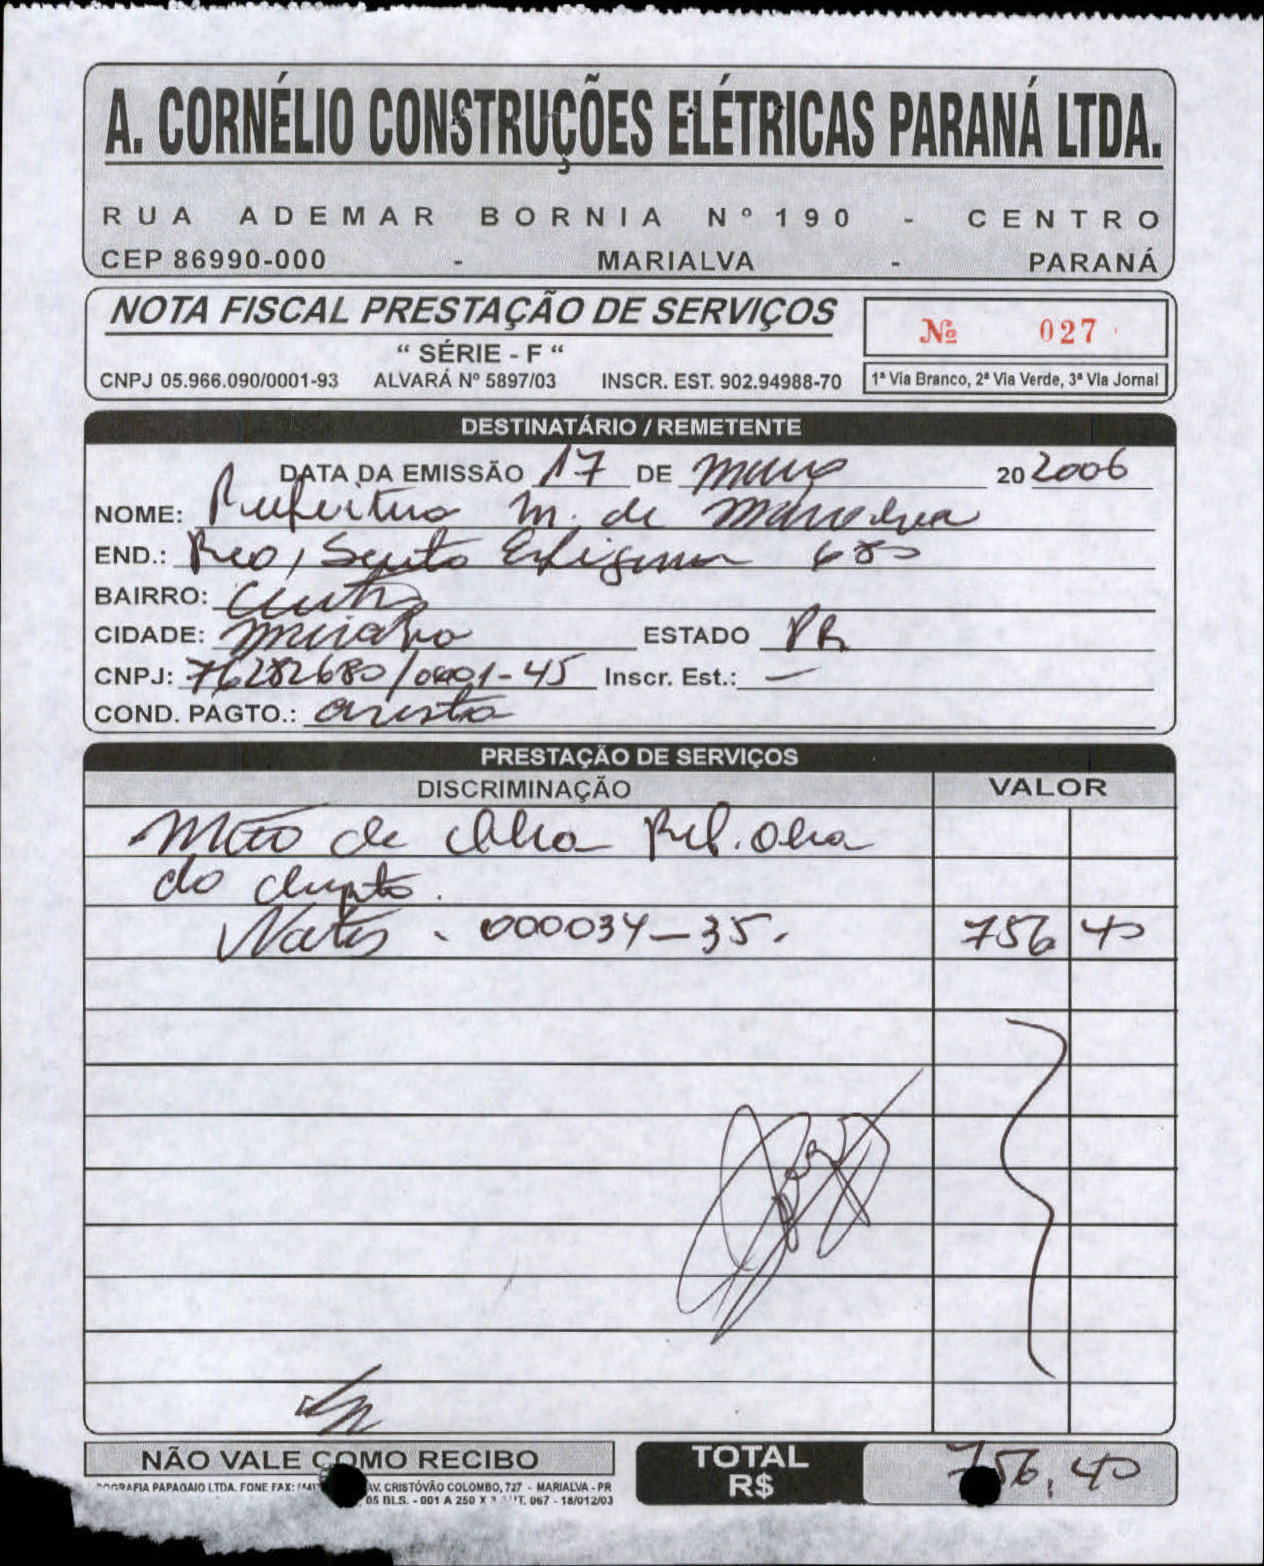 A. CORNÉLIO CONSTRUÇÕES ELÉTRICAS PARANÁ LTDA.
RUA ADEMAR BORNIA Nº 190 - CENTRO
CEP 86990-000 - MARIALVA - PARANÁ
NOTA FISCAL PRESTAÇÃO DE SERVIÇOS
“ SÉRIE - F “
Nº 027
CNPJ 05.966.090/0001-93 ALVARÁ Nº 5897/03 INSCR. EST. 902.94988-70
1ª Via Branco, 2ª Via Verde, 3ª Via Jornal
DESTINATÁRIO / REMETENTE
DATA DA EMISSÃO 17 DE 20 2006
NOME: Prefeitura M. de
END.: 680
BAIRRO: Centro
CIDADE: ESTADO PR
CNPJ: 76282680/0001-45 Inscr. Est.: —
COND. PAGTO.: avista
PRESTAÇÃO DE SERVIÇOS
DISCRIMINAÇÃO VALOR
Mão de obra
do
Notas. 000034-35. 756 40
NÃO VALE COMO RECIBO
TOTAL R$ 756,40
PAPAGAIO LTDA. FONE FAX: AV. CRISTÓVÃO COLOMBO, 727 - MARIALVA - PR
05 BLS. - 001 A 250 X 3 067 - 18/012/03